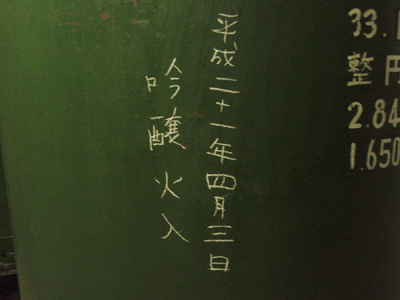 平成二十一年四月三日
吟醸火入
33.
整 円
2.84
1.650